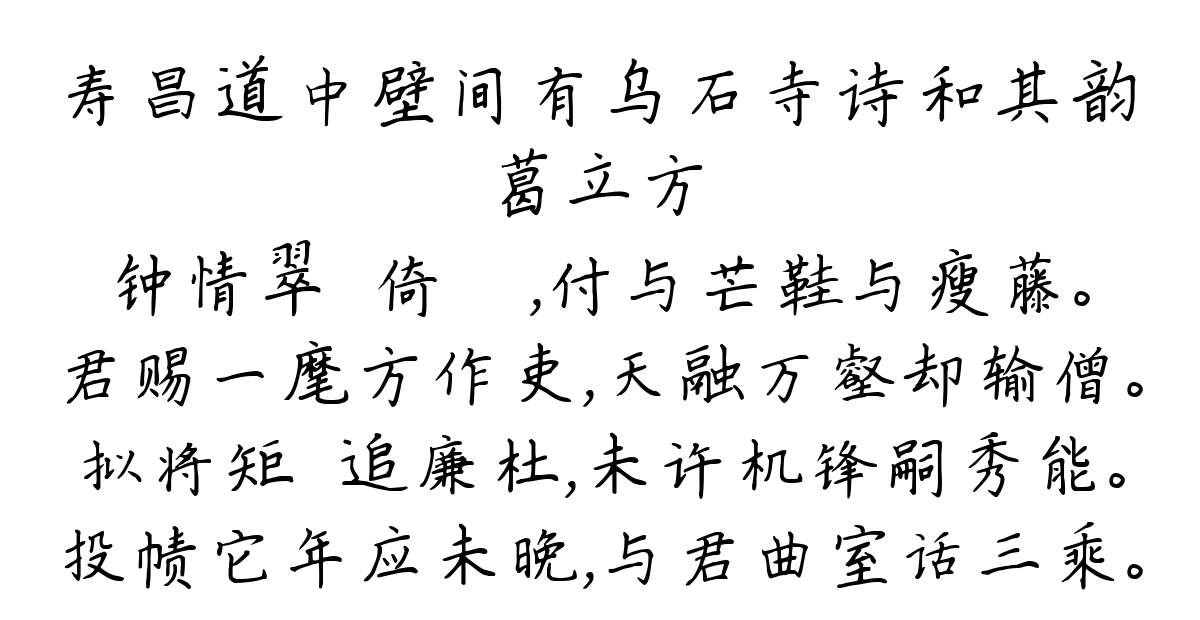 寿昌道中壁间有乌石寺诗和其韵
葛立方
钟情翠 倚 ,付与芒鞋与瘦藤。
君赐一麾方作吏,天融万壑却输僧。
拟将矩 追廉杜,未许机锋嗣秀能。
投帻它年应未晚,与君曲室话三乘。